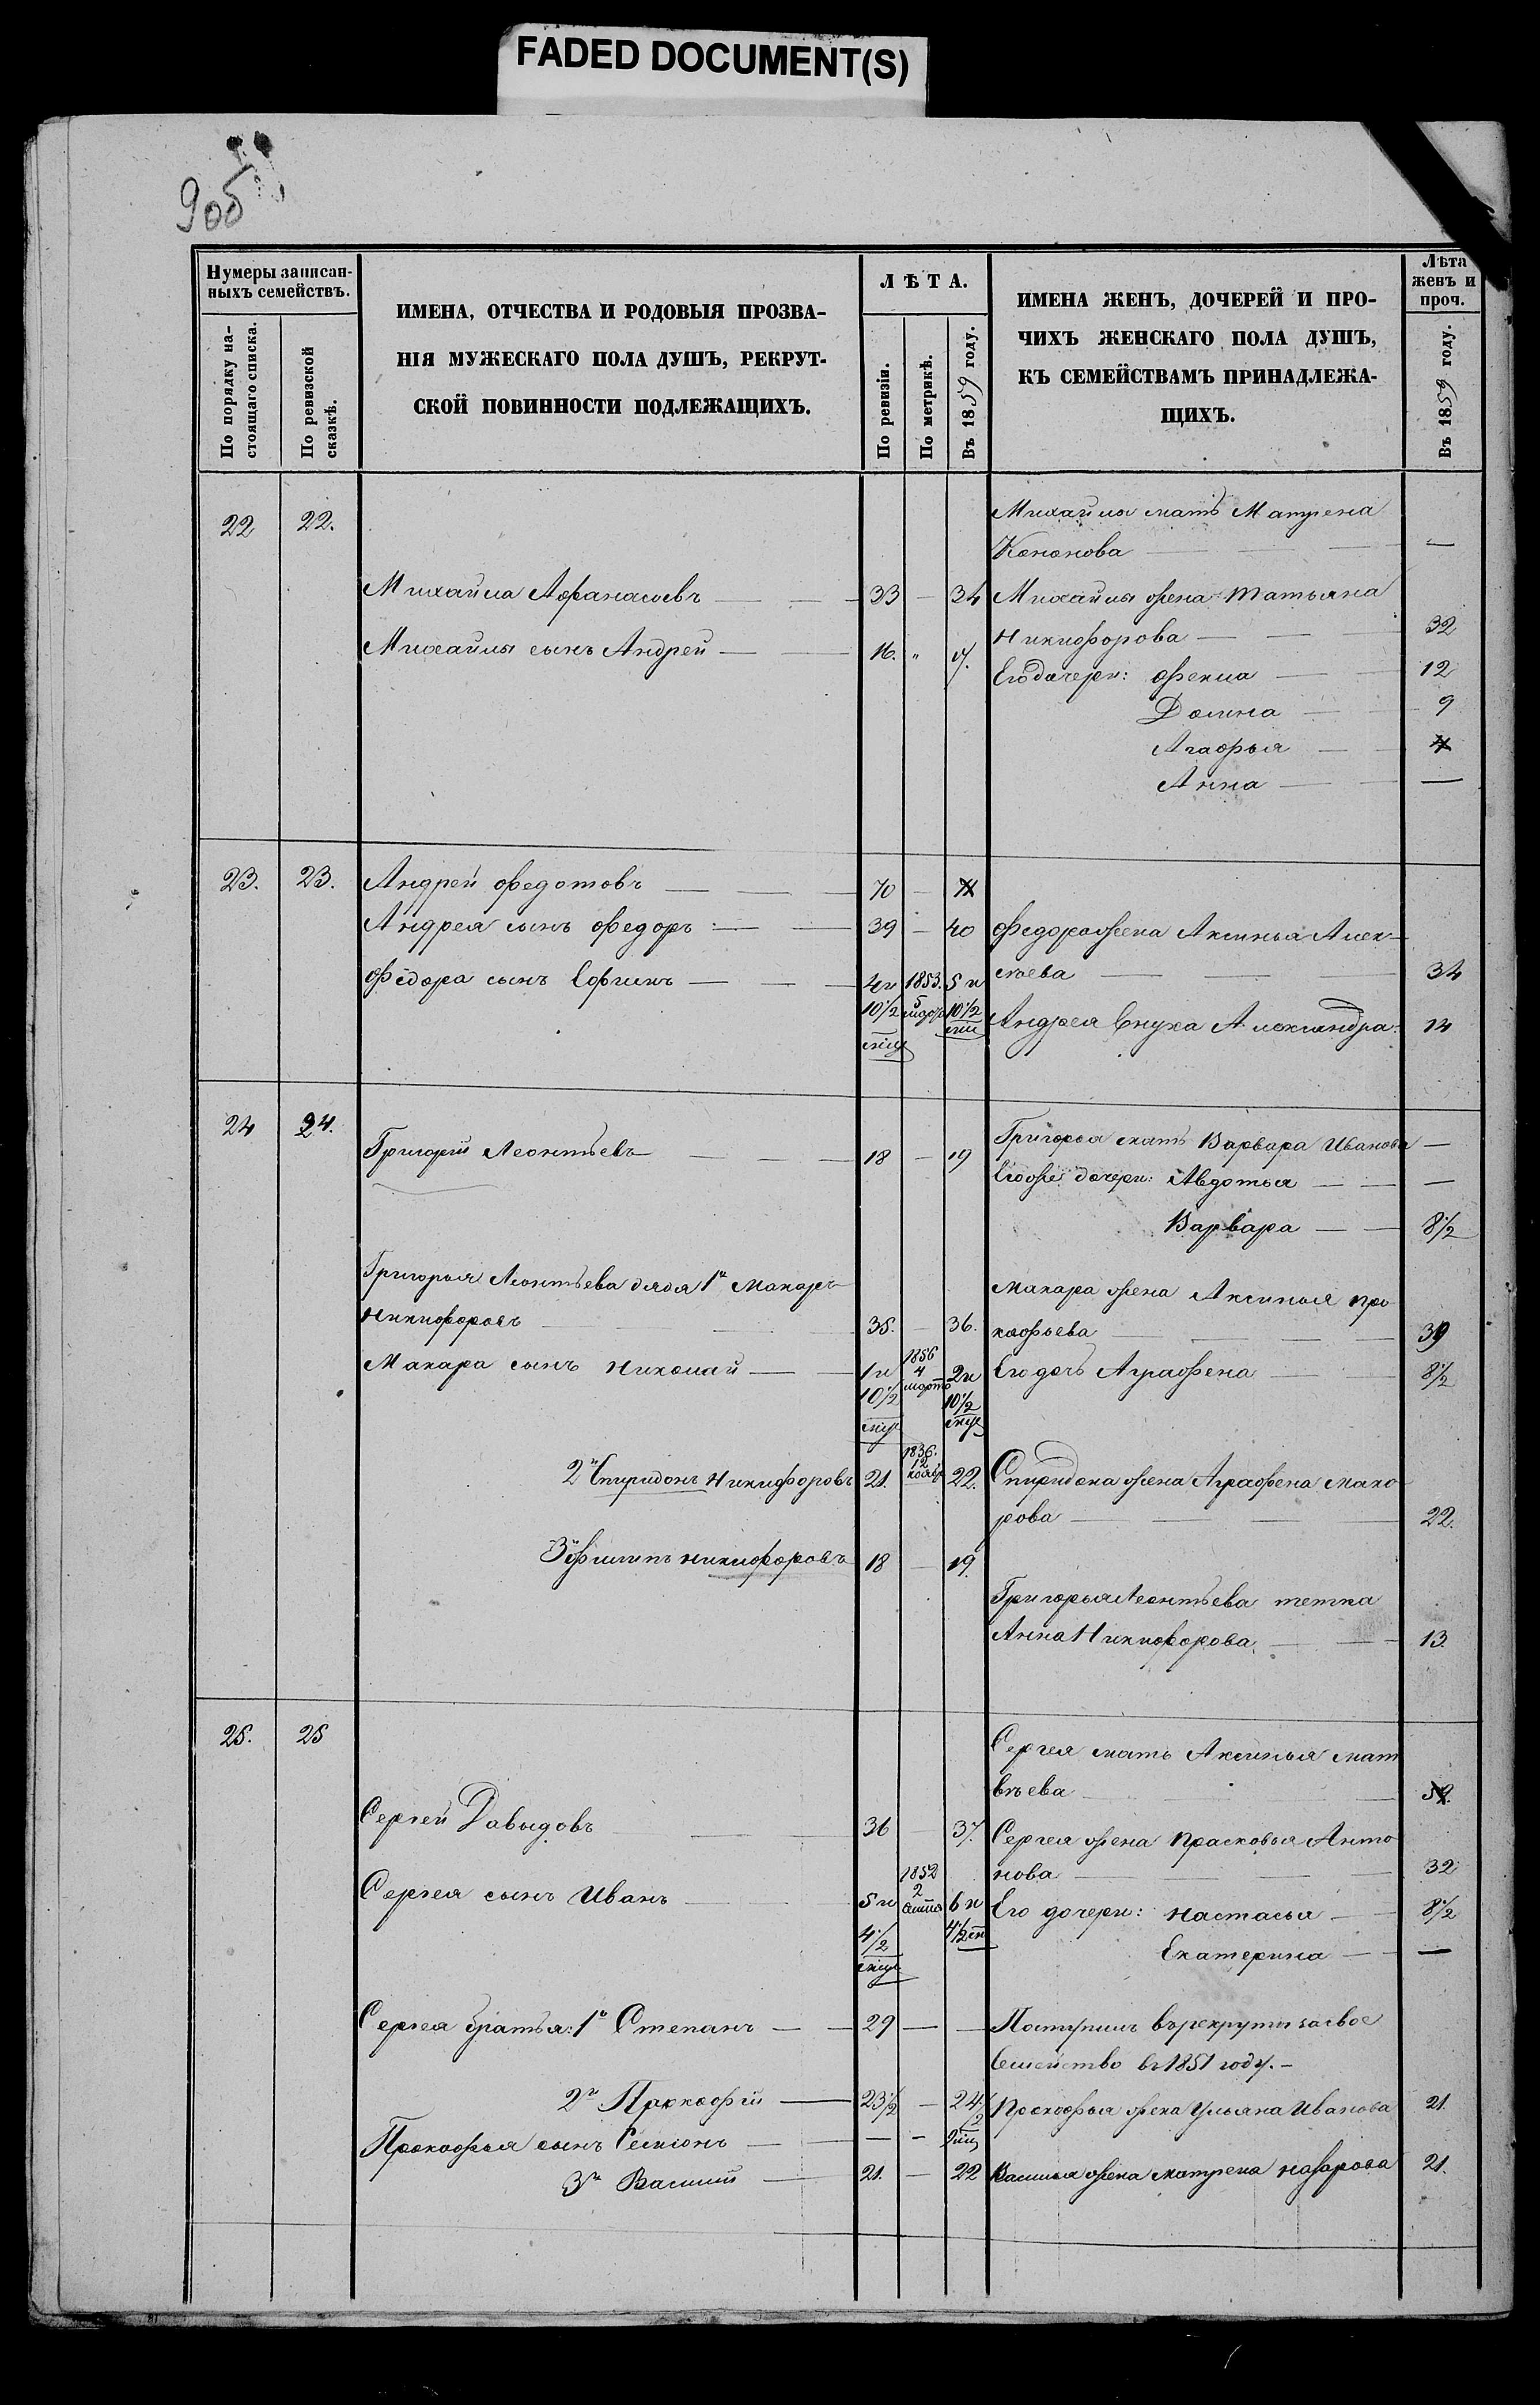 FADED DOCUMENT(S)
9об
Нумеры записан-
ныхъ семействъ.
По порядку на-
стоящаго списка.
По ревизской
сказкѣ.
ИМЕНА, ОТЧЕСТВА И РОДОВЫЯ ПРОЗВА-
НІЯ МУЖЕСКАГО ПОЛА ДУШЪ, РЕКРУТ-
СКОЙ ПОВИННОСТИ ПОДЛЕЖАЩИХЪ.
ЛѢТА.
По ревизіи.
По метрикѣ.
Въ 1859 году.
ИМЕНА ЖЕНЪ, ДОЧЕРЕЙ И ПРО-
ЧИХЪ ЖЕНСКАГО ПОЛА ДУШЪ,
КЪ СЕМЕЙСТВАМЪ ПРИНАДЛЕЖА-
ЩИХЪ.
Лѣта
женъ и
проч.
Въ 1859 году.
22 22. Михайлы мать Матрена
Кононова —
Михайла Афанасьевъ 33 — 34 Михайлы жена Татьяна
Никифорова 32
Михайлы сынъ Андрей 16. „ 17.
Его дочери: Фекла 12
Домна 9
Агафья
Анна —
23. 23. Андрей Федотовъ 70 —
Андрея сынъ Федоръ 39 — 40 Федора жена Аксинья Алек-
сѣева 34
Федора сынъ Ефимъ 4 и 1853. 5 и
10½ 10½
Андрея внука Александра. 14
24 24.
Григорій Леонтьевъ 18 — 19 Григорья мать Варвара Иванова —
Его же дочери: Авдотья —
Варвара 8½
Григорья Леонтьева дядя 1й Макаръ
Никифоровъ 35. — 36.
Макара жена Аксинья Про-
кофьева 39
Макара сынъ Николай 1 и 1856 4 марта 2 и
10½ 10½
Его дочь Аграфена 8½
2й Спиридонъ Никифоровъ 21. 1836. 12 ноябр 22. Спиридона жена Аграфена Мака-
рова 22.
3й Филипъ Никифоровъ 18 — 19.
Григорья Леонтьева тетка
Анна Никифорова 13.
25. 25 Сергея мать Аксинья Мат
вѣева
Сергей Давыдовъ 36 — 37. Сергея жена Прасковья Анто
нова 32
Сергея сынъ Иванъ 5 и 1852 2 6 и
4½ 4½
Его дочери: Настасья 8½
Екатерина —
Сергея братья: 1й Степанъ 29 — — Поступилъ въ рекруты за свое
семейство въ 1851 году.
2й Прокофій 23½ — 24½ Прокофья жена Ульяна Иванова 21.
Прокофья сынъ Семіонъ — —
3й Василий 21. — 22 Василья жена Матрена Назарова 21.